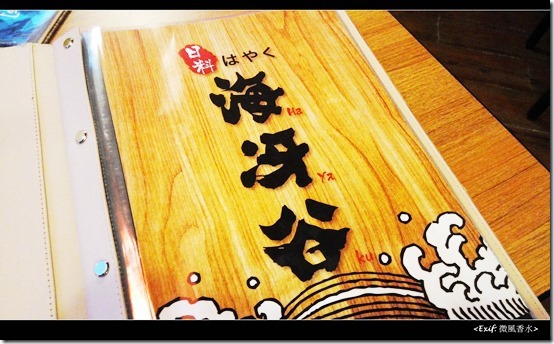 日料
はやく
海
Ha
牙
Ya
谷
Ku
<Exif: 微風香水>